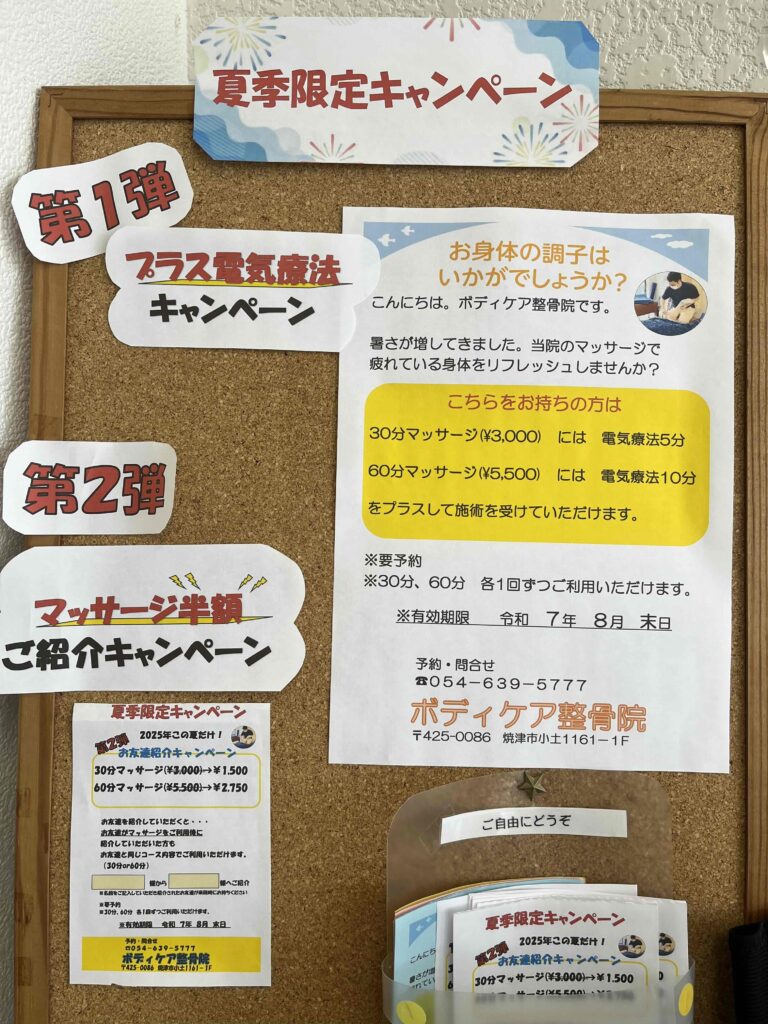 夏季限定キャンペーン
第1弾
プラス電気療法
キャンペーン
お身体の調子は
いかがでしょうか？
こんにちは。ボディケア整骨院です。
暑さが増してきました。当院のマッサージで
疲れている身体をリフレッシュしませんか？
こちらをお持ちの方は
30分マッサージ(¥3,000) には 電気療法5分
60分マッサージ(¥5,500) には 電気療法10分
をプラスして施術を受けていただけます。
※要予約
※30分、60分 各1回ずつご利用いただけます。
※有効期限 令和 7年 8月 末日
予約・問合せ
☎054-639-5777
ボディケア整骨院
〒425-0086 焼津市小土1161-1F
第2弾
マッサージ半額
ご紹介キャンペーン
夏季限定キャンペーン
2025年この夏だけ！
第2弾
お友達紹介キャンペーン
30分マッサージ(¥3,000)→¥1,500
60分マッサージ(¥5,500)→¥2,750
お友達を紹介していただくと・・・
お友達がマッサージをご利用後に
紹介していただいた方も
お友達と同じコース内容でご利用いただけます。
(30分or60分)
様から 様へご紹介
※名前をご記入していただき紹介されたお友達が来院時にお持ちください
※要予約
※30分、60分 各1回ずつご利用いただけます。
※有効期限 令和 7年 8月 末日
予約・問合せ
☎054-639-5777
ボディケア整骨院
〒425-0086 焼津市小土1161-1F
ご自由にどうぞ
こんにち
暑さが増
夏季限定キャンペーン
2025年この夏だけ！
第2弾
お友達紹介キャンペーン
30分マッサージ(¥3,000)→¥1,500